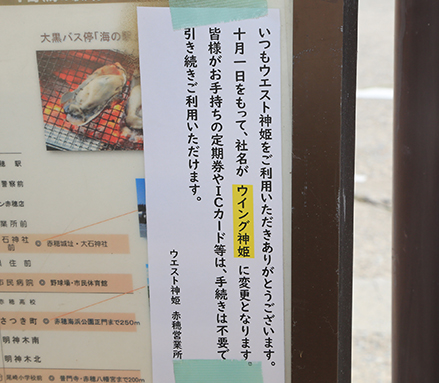 いつもウエスト神姫をご利用いただきありがとうございます。
十月一日をもって、社名が ウイング神姫 に変更となります。
皆様がお手持ちの定期券やICカード等は、手続きは不要で
引き続きご利用いただけます。
ウエスト神姫 赤穂営業所
大黒バス停「海の駅
穂 駅
警察前
ン赤穂店
業所前
石神社前
赤穂城址・大石神社
住前
市民病院
野球場・市民体育館
穂高校
さつき町
赤穂海浜公園正門まで250m
明神木南
明神木北
尾崎小学校前
普門寺・赤穂八幡宮まで200m